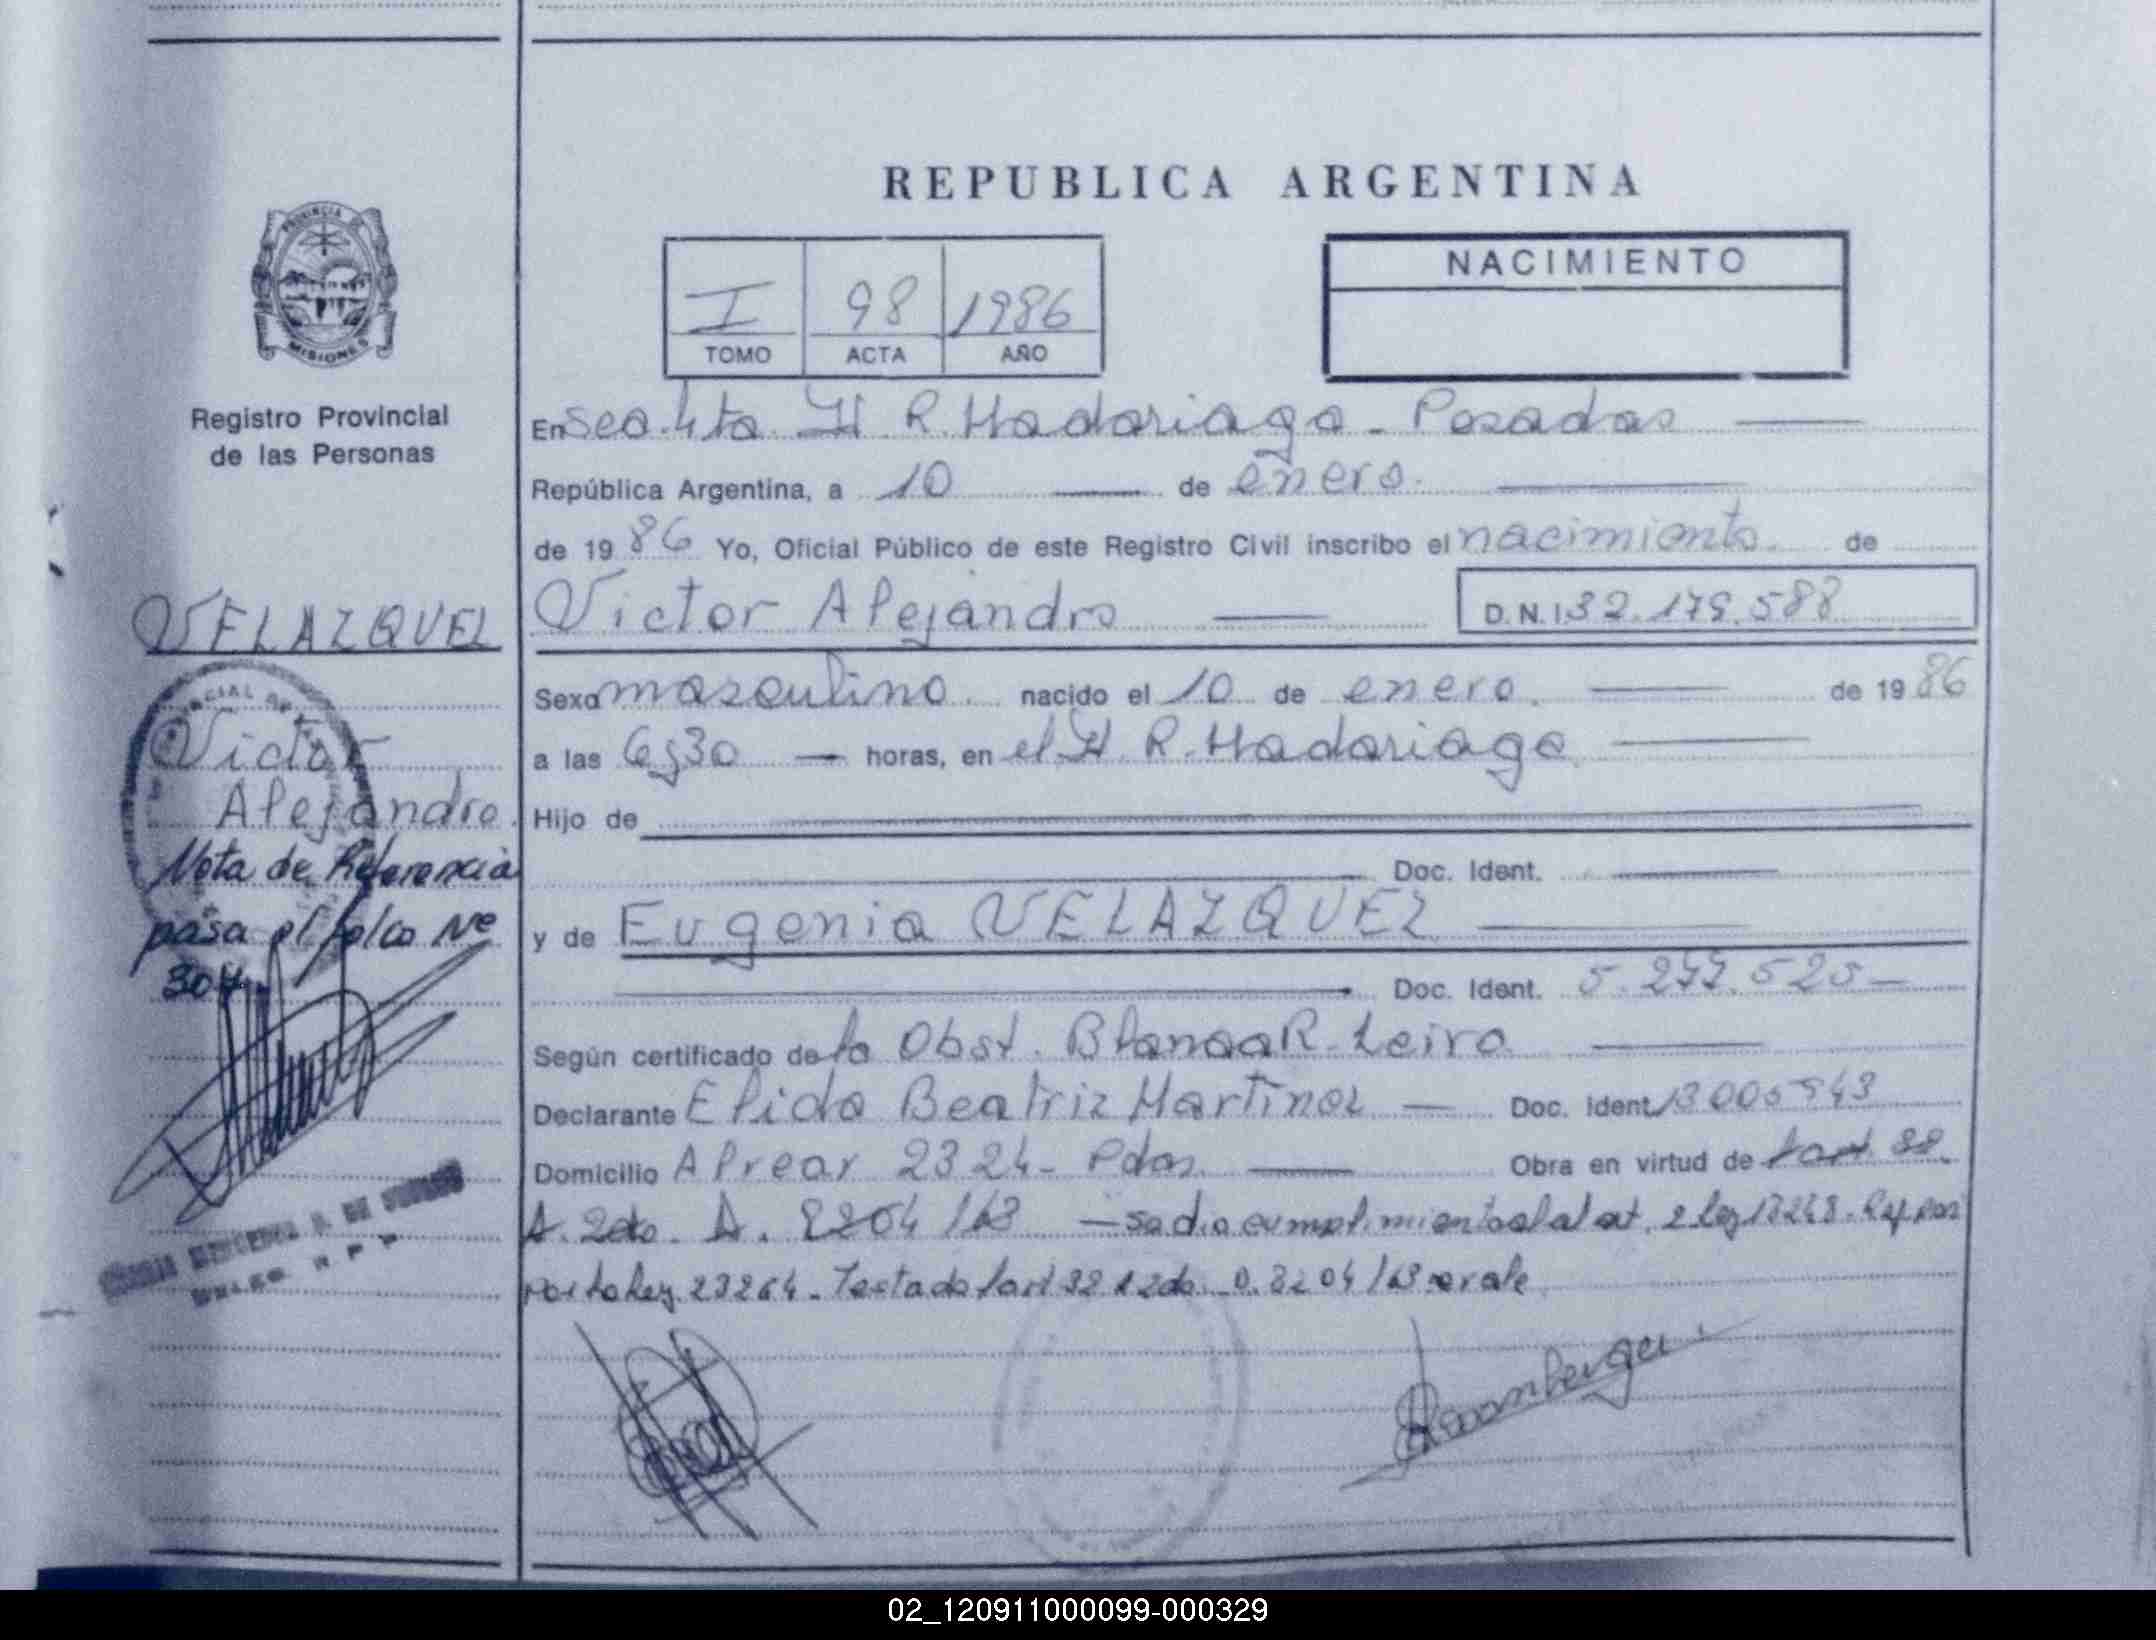 REPUBLICA ARGENTINA
PROVINCIA DE
MISIONES
Registro Provincial
de las Personas
I 98 1986
TOMO ACTA AÑO
NACIMIENTO
En Sec. 4ta. H. R. Madariaga - Posadas
República Argentina, a 10 de enero.
de 1986 Yo, Oficial Público de este Registro Civil inscribo el nacimiento. de
VELAZQUEZ
Victor Alejandro
D.N.I 32.179.588
Sexo masculino. nacido el 10 de enero. de 1986
a las 6,30 horas, en el H. R. Madariaga
Hijo de
Doc. Ident.
y de Eugenia VELAZQUEZ
Doc. Ident. 5.277.525
Según certificado de la Obst. Blanca R. Leiva
Declarante Elida Beatriz Martinez Doc. Ident 13005943
Domicilio Alvear 2324 - Pdas. Obra en virtud de
A. 2do. 8204/63 - se dio cumplimiento al art. 2 ley 18248.
por la ley 23264 - Testado 8204/63 no vale
Victor
Alejandro.
Nota de Referencia
pasa al folio Nº
304
02_120911000099-000329